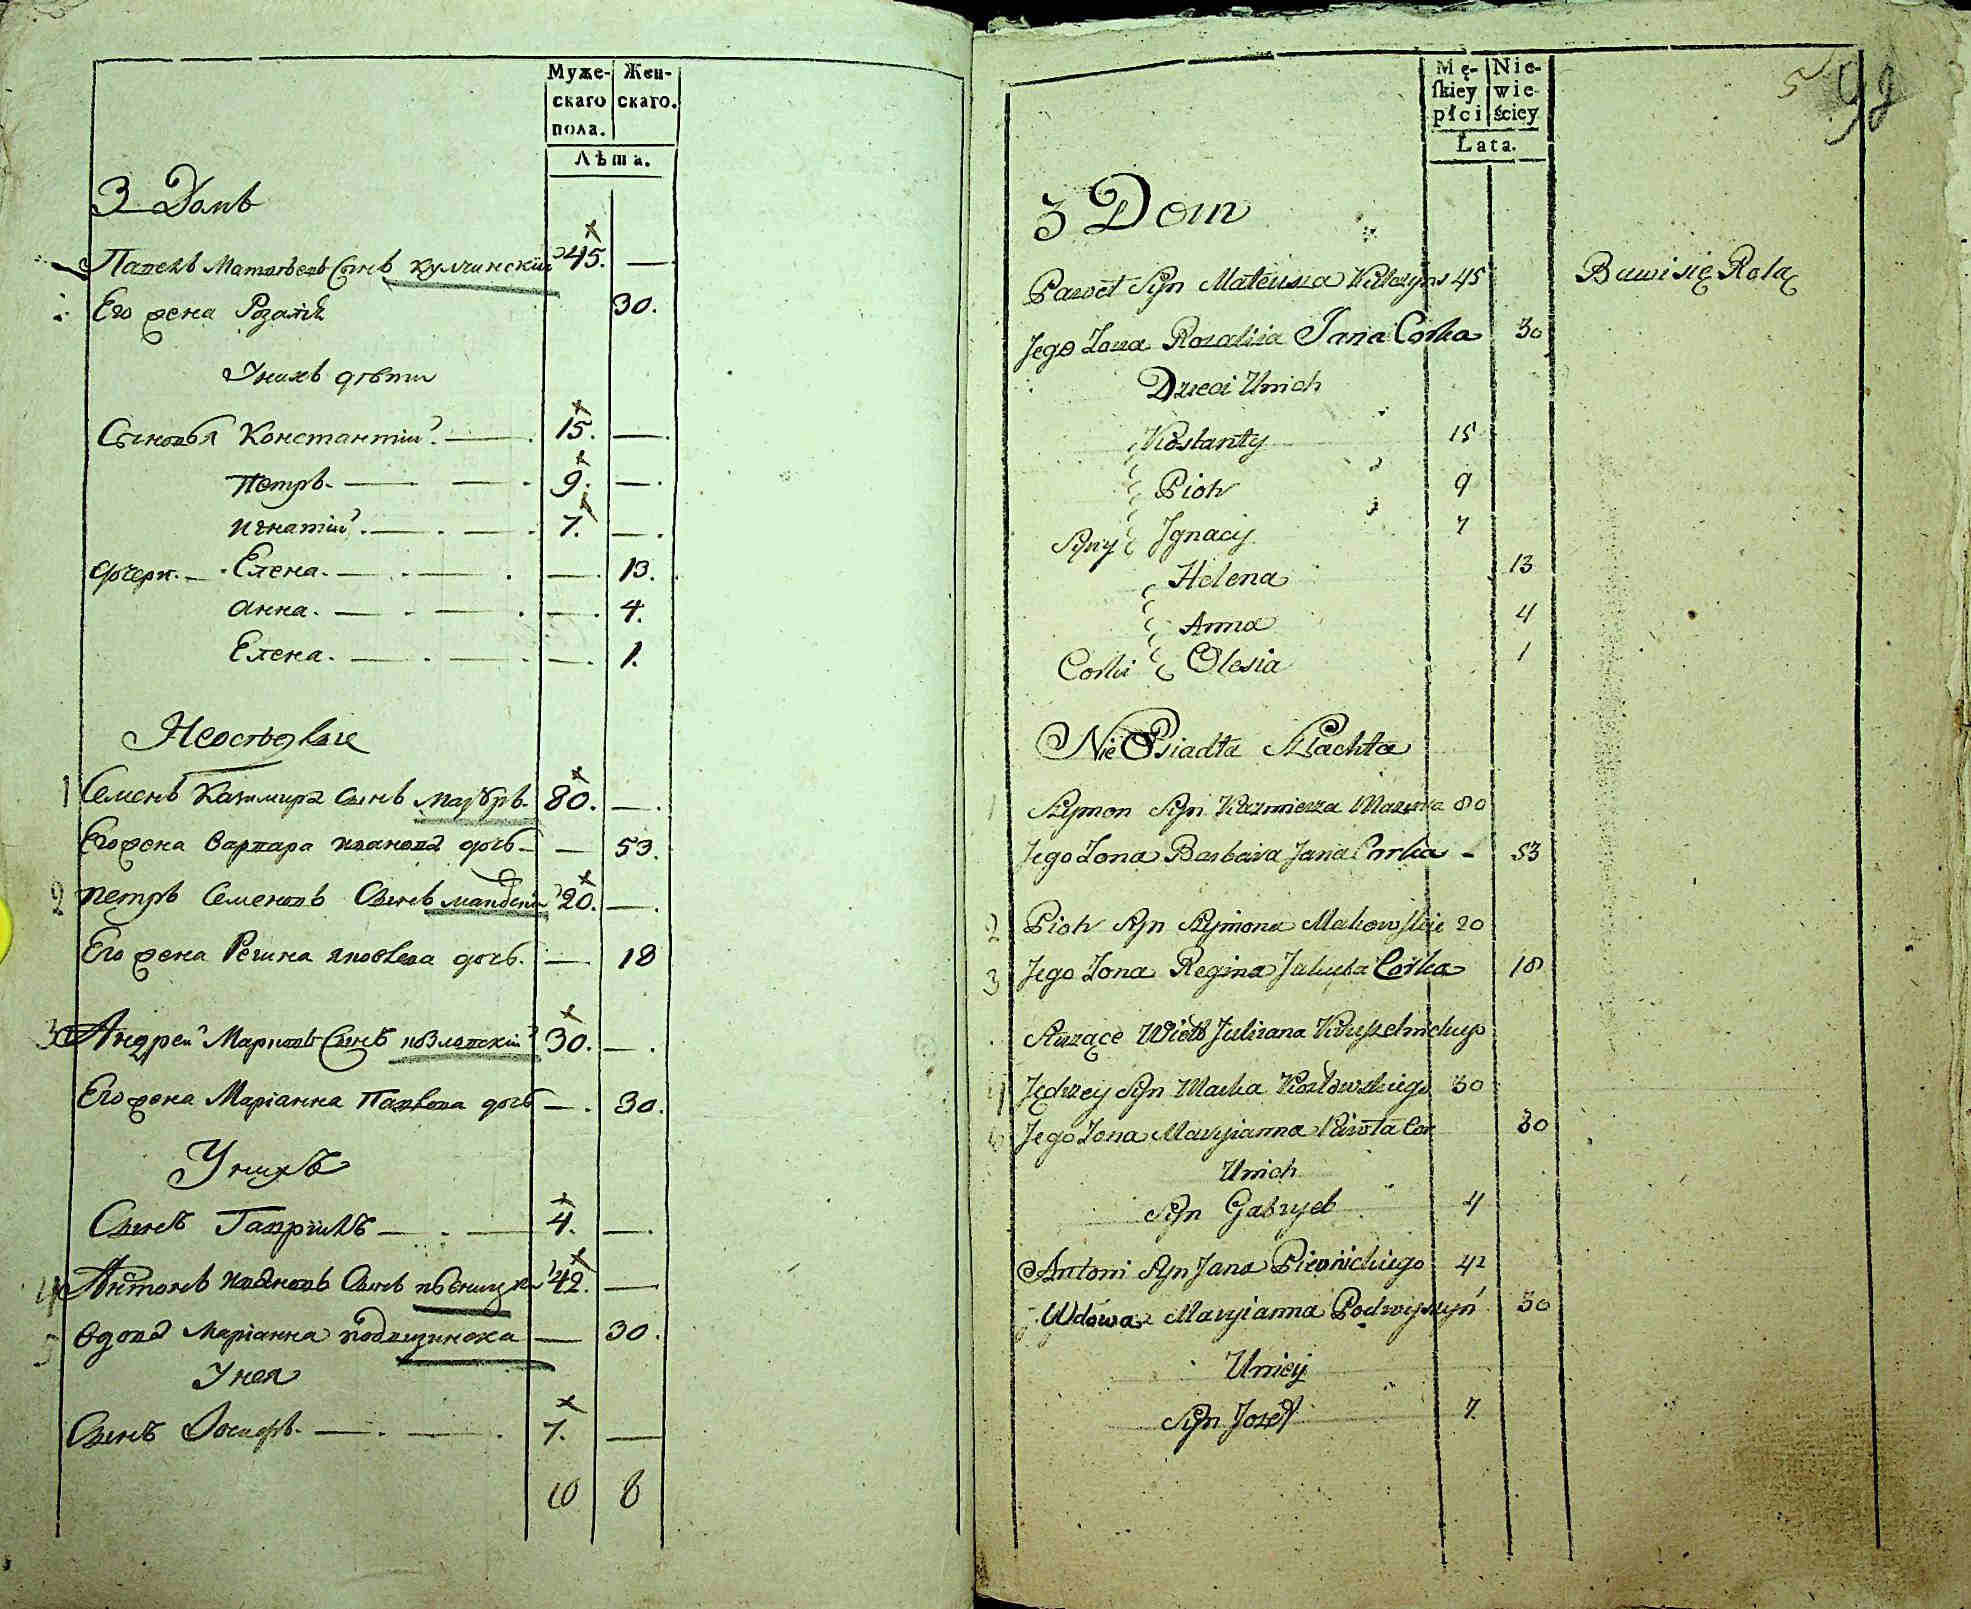 Муже-
скаго
пола.
Жен-
скаго.
Лѣта.
3 Домъ
Павелъ Матвѣевъ Сынъ Кулчинскій 45. —
Его жена Розаліѣ 30.
У нихъ дѣти
Сыновья Константій. — 15. —
Петръ. — — 9. —
Игнатій. — — 7. —
дочери. — Елена. — — 13.
Анна. — — — 4.
Елена. — — — 1.
Неосѣдлые
1 Семенъ Казимира Сынъ 80. —
Его жена Варвара Иванова дочь — — 53.
2 Петръ Семеновъ Сынъ 20. —
Его жена Регина Яковлева дочь. — 18
3 Андрей Марковъ Сынъ Козловскій 30. —
Его жена Маріанна Павлова дочь — 30.
У нихъ
Сынъ Гавріилъ — — 4. —
4 Антонъ Ивановъ Сынъ 42. —
5 Вдова Маріанна — 30.
У нея
Сынъ Іосифъ. — — 7. —
10 8
Mę-
skiey
płci
Nie-
wie-
ściey
Lata.
5 92
3 Dom
Paweł Syn Mateusza Kulczyns 45 Bawi się Rolą
Jego Zona Rozalia Jana Corka 30
Dzieci Unich
Kostanty 15
Piotr 9
Syny Jgnacy 7
Helena 13
Anna 4
Corki Olesia 1
Nie Osiadła Szlachta
1 Szymon Syn Kazmierza 80
Jego Zona Barbara Jana Corka - 53
2 Piotr Syn Szymona Makowskie 20
3 Jego Zona Regina Jakuba Corka 18
Służące Juliana
4 Jędrzey Syn Marka Kozłowskiego 30
Jego Zona Maryianna Pawła Cor 30
Unich
Syn Gabryel 4
Antoni Syn Jana 42
Wdowa Maryianna 30
Uniey
Syn Jozef 7